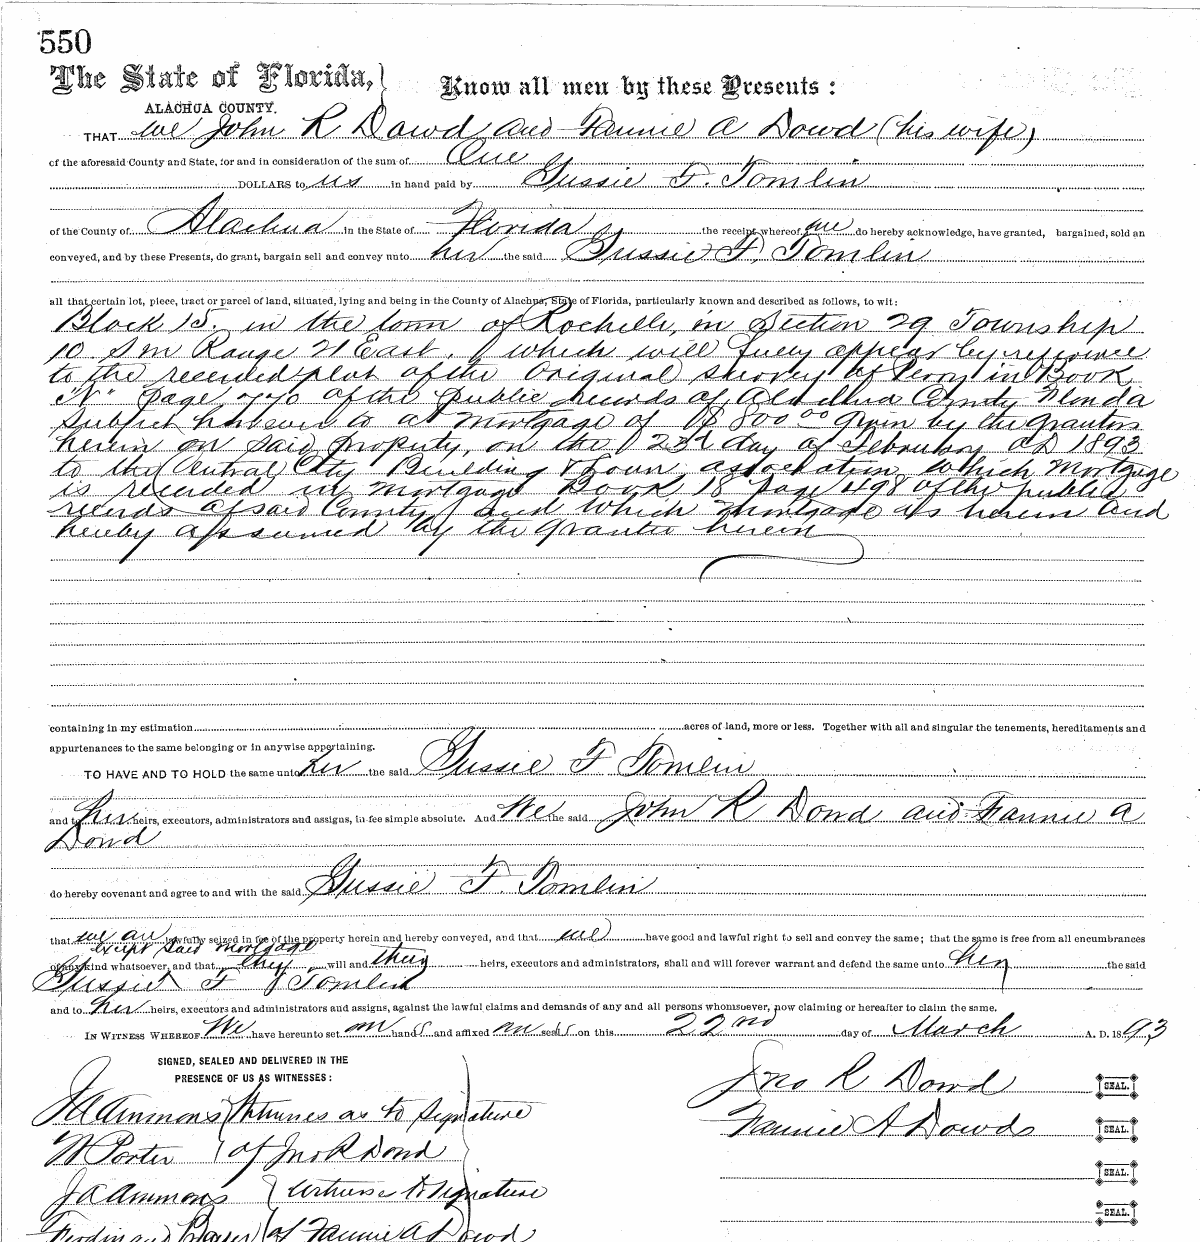 550
The State of Florida,
Know all men by these Presents :
ALACHUA COUNTY.
THAT we John R Dowd and Fannie A Dowd (his wife)
of the aforesaid County and State, for and in consideration of the sum of One
DOLLARS to us in hand paid by Gussie F. Tomlin
of the County of Alachua in the State of Florida the receipt whereof we do hereby acknowledge, have granted, bargained, sold an
conveyed, and by these Presents, do grant, bargain sell and convey unto her the said Gussie F. Tomlin
all that certain lot, piece, tract or parcel of land, situated, lying and being in the County of Alachua, State of Florida, particularly known and described as follows, to wit:
Block 15. in the town of Rochelle, in Section 29 Township
10 Range 21 East. which will fully appear by reference
to the recorded plat of the original survey of in Book
page 770 of the public records of Alachua County Florida
Subject however to a mortgage of $800 00 given by the grantors
herein on said property, on the 23d day of February AD 1893
to the Central City Building & Loan association which mortgage
is recorded in mortgage Book 18 page 498 of the public
records of said County and which mortgage is herein and
hereby assumed by the grantee herein
containing in my estimation acres of land, more or less. Together with all and singular the tenements, hereditaments and
appurtenances to the same belonging or in anywise appertaining.
TO HAVE AND TO HOLD the same unto her the said Gussie F Tomlin
and to her heirs, executors, administrators and assigns, in fee simple absolute. And We the said John R Dowd and Fannie A
Dowd
do hereby covenant and agree to and with the said Gussie F. Tomlin
that we are lawfully seized in fee of the property herein and hereby conveyed, and that we have good and lawful right to sell and convey the same; that the same is free from all encumbrances
except said mortgage
of any kind whatsoever, and that they will and their heirs, executors and administrators, shall and will forever warrant and defend the same unto her the said
Gussie F Tomlin
and to her heirs, executors and administrators and assigns, against the lawful claims and demands of any and all persons whomsoever, now claiming or hereafter to claim the same.
IN WITNESS WHEREOF We have hereunto set our hands and affixed our seals on this 22nd day of March A. D. 1893
SIGNED, SEALED AND DELIVERED IN THE
PRESENCE OF US AS WITNESSES :
Jno R Dowd SEAL.
J A Ammons Witness as to Signature
Fannie A Dowds SEAL.
W Porter of Jno R Dowd
SEAL.
J A Ammons Witness to signature
SEAL.
Ferdinand Bayer of Fannie A Dowd